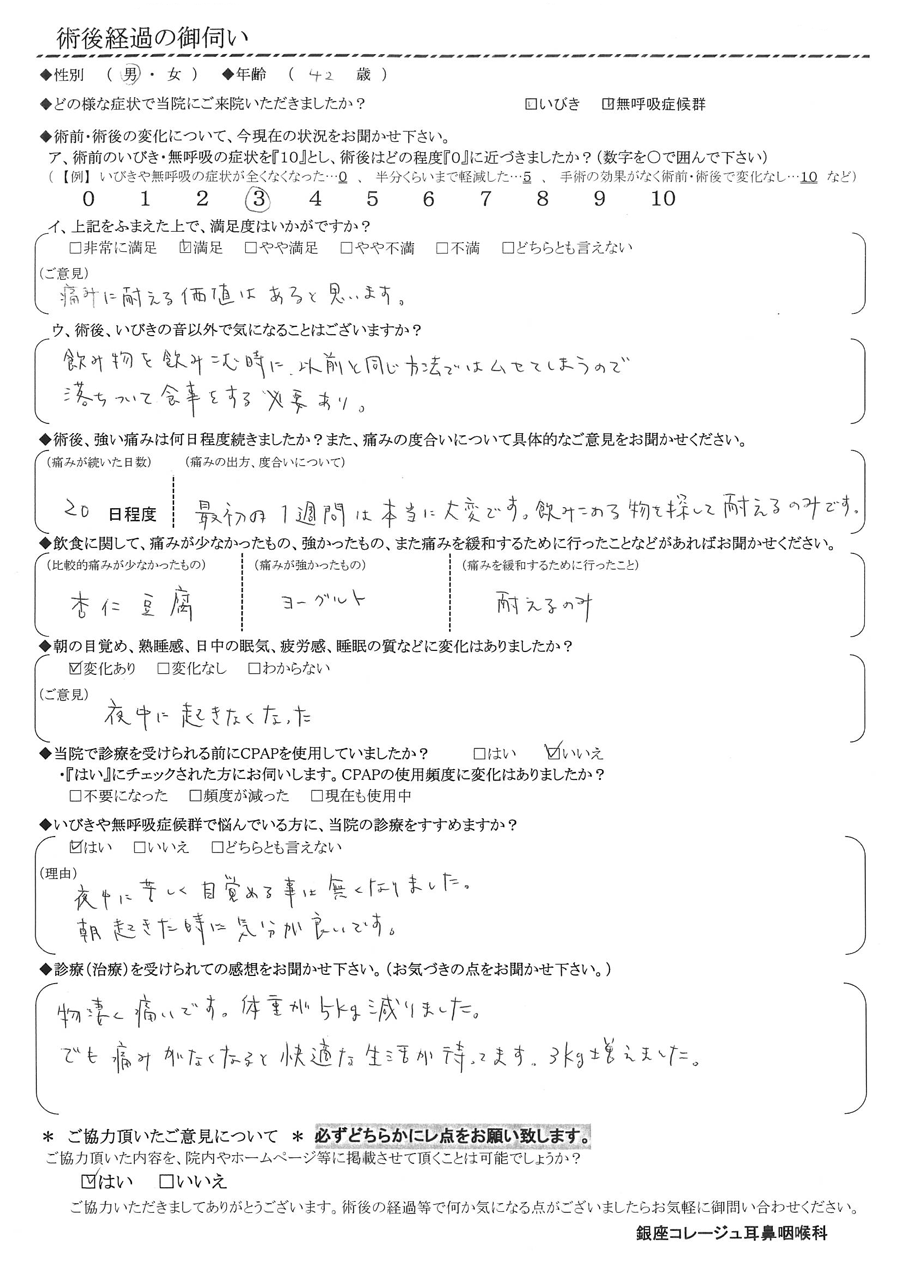 術後経過の御伺い
◆性別 ( 男 ・ 女 ) ◆年齢 ( 42 歳 )
◆どの様な症状で当院にご来院いただきましたか? ☑いびき ☑無呼吸症候群
◆術前・術後の変化について、今現在の状況をお聞かせ下さい。
ア、術前のいびき・無呼吸の症状を『10』とし、術後はどの程度『0』に近づきましたか?(数字を○で囲んで下さい)
(【例】いびきや無呼吸の症状が全くなくなった…0 、 半分くらいまで軽減した…5 、 手術の効果がなく術前・術後で変化なし…10 など)
0 1 2 3 4 5 6 7 8 9 10
イ、上記をふまえた上で、満足度はいかがですか?
□非常に満足 ☑満足 □やや満足 □やや不満 □不満 □どちらとも言えない
(ご意見)
痛みに耐える価値はあると思います。
ウ、術後、いびきの音以外で気になることはございますか?
飲み物を飲みこむ時に、以前と同じ方法ではムセてしまうので
落ちついて食事をする必要あり。
◆術後、強い痛みは何日程度続きましたか?また、痛みの度合いについて具体的なご意見をお聞かせください。
(痛みが続いた日数) (痛みの出方、度合いについて)
20 日程度 最初の1週間は本当に大変です。飲みこめる物を探して耐えるのみです。
◆飲食に関して、痛みが少なかったもの、強かったもの、また痛みを緩和するために行ったことなどがあればお聞かせください。
(比較的痛みが少なかったもの) (痛みが強かったもの) (痛みを緩和するために行ったこと)
杏仁豆腐 ヨーグルト 耐えるのみ
◆朝の目覚め、熟睡感、日中の眠気、疲労感、睡眠の質などに変化はありましたか?
☑変化あり □変化なし □わからない
(ご意見)
夜中に起きなくなった
◆当院で診療を受けられる前にCPAPを使用していましたか? □はい ☑いいえ
・『はい』にチェックされた方にお伺いします。CPAPの使用頻度に変化はありましたか?
□不要になった □頻度が減った □現在も使用中
◆いびきや無呼吸症候群で悩んでいる方に、当院の診療をすすめますか?
☑はい □いいえ □どちらとも言えない
(理由)
夜中に苦しく目覚める事は無くなりました。
朝起きた時に気分が良いです。
◆診療(治療)を受けられての感想をお聞かせ下さい。(お気づきの点をお聞かせ下さい。)
物凄く痛いです。体重が5kg減りました。
でも痛みがなくなると快適な生活が待ってます。3kg増えました。
* ご協力頂いたご意見について * 必ずどちらかにレ点をお願い致します。
ご協力頂いた内容を、院内やホームページ等に掲載させて頂くことは可能でしょうか?
☑はい □いいえ
ご協力いただきましてありがとうございます。術後の経過等で何か気になる点がございましたらお気軽に御問い合わせください。
銀座コレージュ耳鼻咽喉科